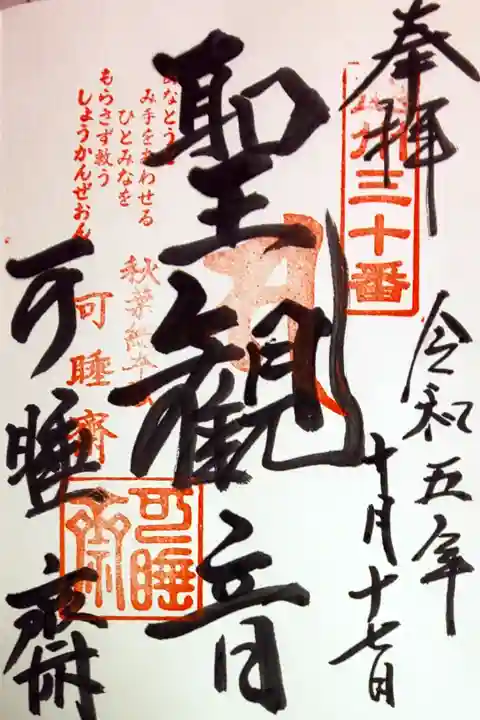 奉拝
三十番
令和五年
十月十七日
聖観音
み手をあわせる
ひとみなを
もらさず救う
しょうかんぜおん
秋葉総本殿
可睡齋
可睡齋
可睡齋